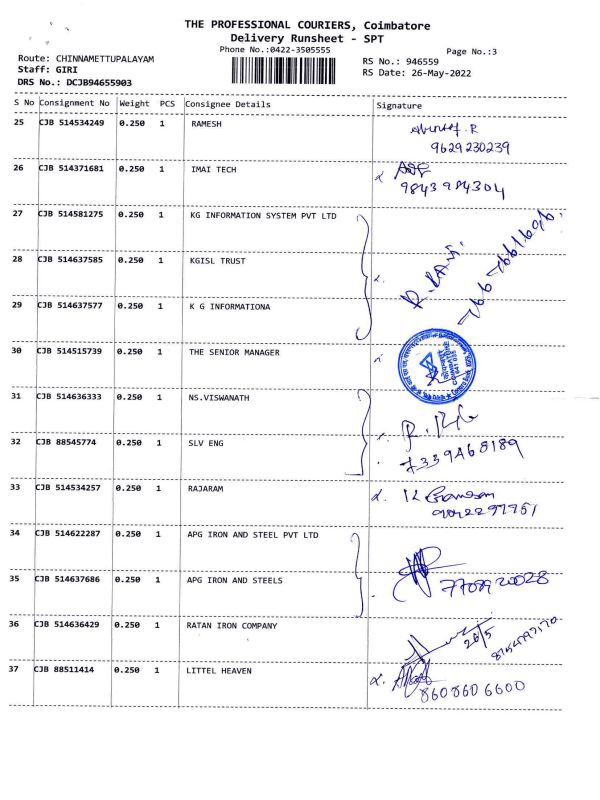 THE PROFESSIONAL COURIERS, Coimbatore
Delivery Runsheet - SPT
Phone No.:0422-3505555
Page No.:3
Route: CHINNAMETTUPALAYAM
RS No.: 946559
Staff: GIRI
RS Date: 26-May-2022
DRS No.: DCJB94655903
S No Consignment No Weight PCS Consignee Details Signature
25 CJB 514534249 0.250 1 RAMESH
9629230239
26 CJB 514371681 0.250 1 IMAI TECH
9843984304
27 CJB 514581275 0.250 1 KG INFORMATION SYSTEM PVT LTD
28 CJB 514637585 0.250 1 KGISL TRUST
29 CJB 514637577 0.250 1 K G INFORMATIONA
30 CJB 514515739 0.250 1 THE SENIOR MANAGER
31 CJB 514636333 0.250 1 NS.VISWANATH
32 CJB 88545774 0.250 1 SLV ENG
7339468189
33 CJB 514534257 0.250 1 RAJARAM
34 CJB 514622287 0.250 1 APG IRON AND STEEL PVT LTD
35 CJB 514637686 0.250 1 APG IRON AND STEELS
7708920028
36 CJB 514636429 0.250 1 RATAN IRON COMPANY
26/5
37 CJB 88511414 0.250 1 LITTEL HEAVEN
8608606600